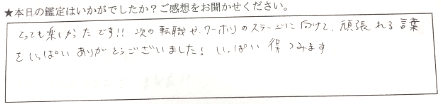 ★本日の鑑定はいかがでしたか？ご感想をお聞かせください。
とっても楽しかったです!! 次の転職や、ワーホリのステージに向けて、頑張れる言葉
をいっぱいありがとうございました! いっぱい得つみます